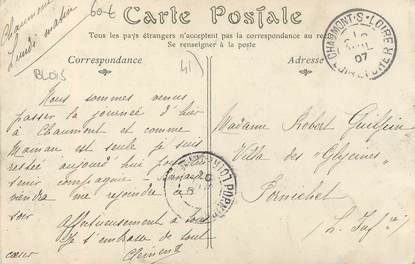 Chaumont
Lundi matin
60€
Carte Postale
Tous les pays étrangers n'acceptent pas la correspondance au recto
Se renseigner à la poste
Correspondance
Adresse
BLOIS
41
CHAUMONT-S-LOIRE
07
LOIR-ET-CHER
Nous sommes venus
passer la journée d'hier
à Chaumont et comme
Maman est seule je suis
restée aujourd'hui pour lui
tenir compagnie
viendra me rejoindre ce
soir
Affectueusement à tous
Je t'embrasse de tout
cœur
Madame Robert
Villa des "Glycines"
Pornichet
(L. Infre)